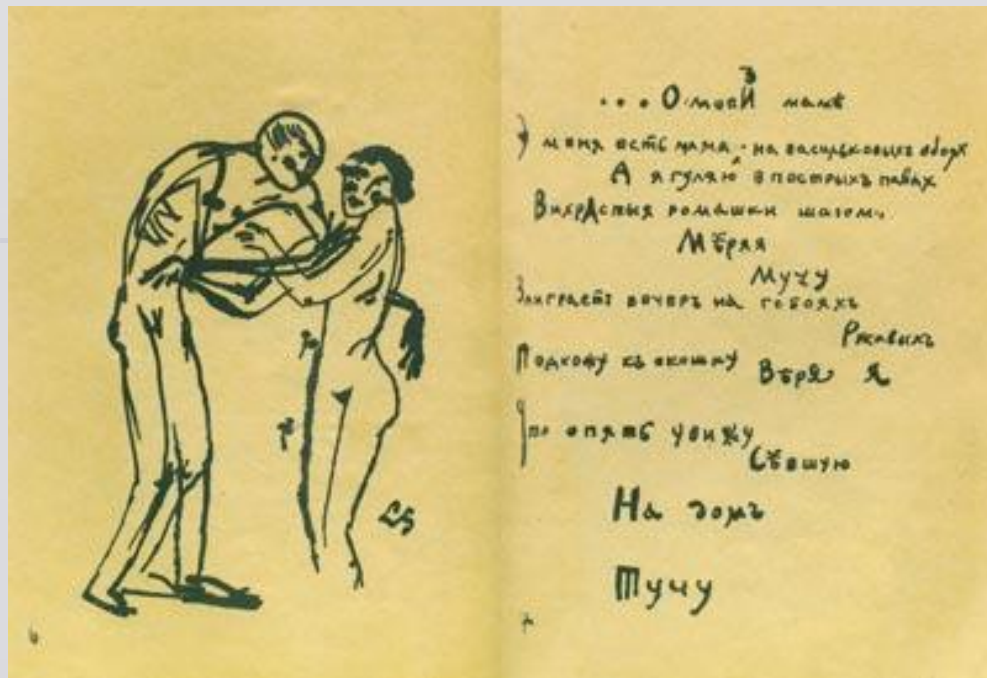 ...О моеЙ мамѣ
У меня есть мама на васильковыхъ обоях
А я гуляю в пестрыхъ павах
Вихрастыя ромашки шагомъ
Мѣряя
Мучу
Заиграетъ вечеръ на гобояхъ
Ржавыхъ
Подхожу къ окошку Вѣря Я
Что опять увижу
Сѣвшую
На домъ
Тучу
6
7